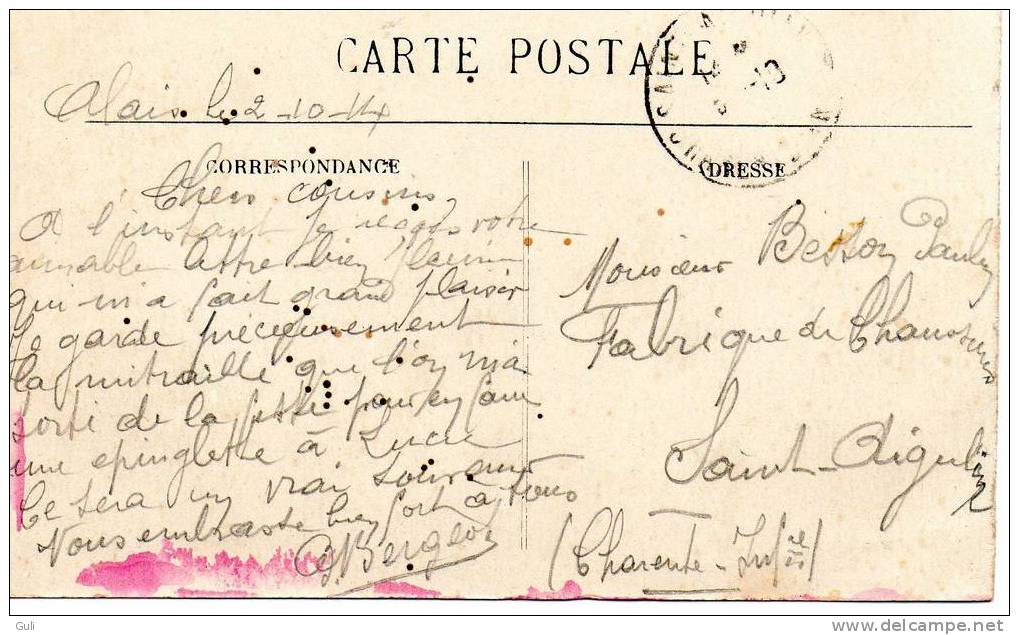 CARTE POSTALE
Alais le 2-10-14
CORRESPONDANCE
ADRESSE
Chers cousins,
A l'instant je reçois votre
aimable lettre bien
qui m'a fait grand plaisir
Je garde précieusement
la mitraille que l'on m'a
sorti de la pour en faire
une epinglette à Lucie
Ce sera un vrai souvenir
Vous embrasse bien fort à tous
G. Bergeon
Monsieur Besson
Fabrique de Chaussures
Saint-Aigulin
(Charente-Infre)
delcampe.net
Guli